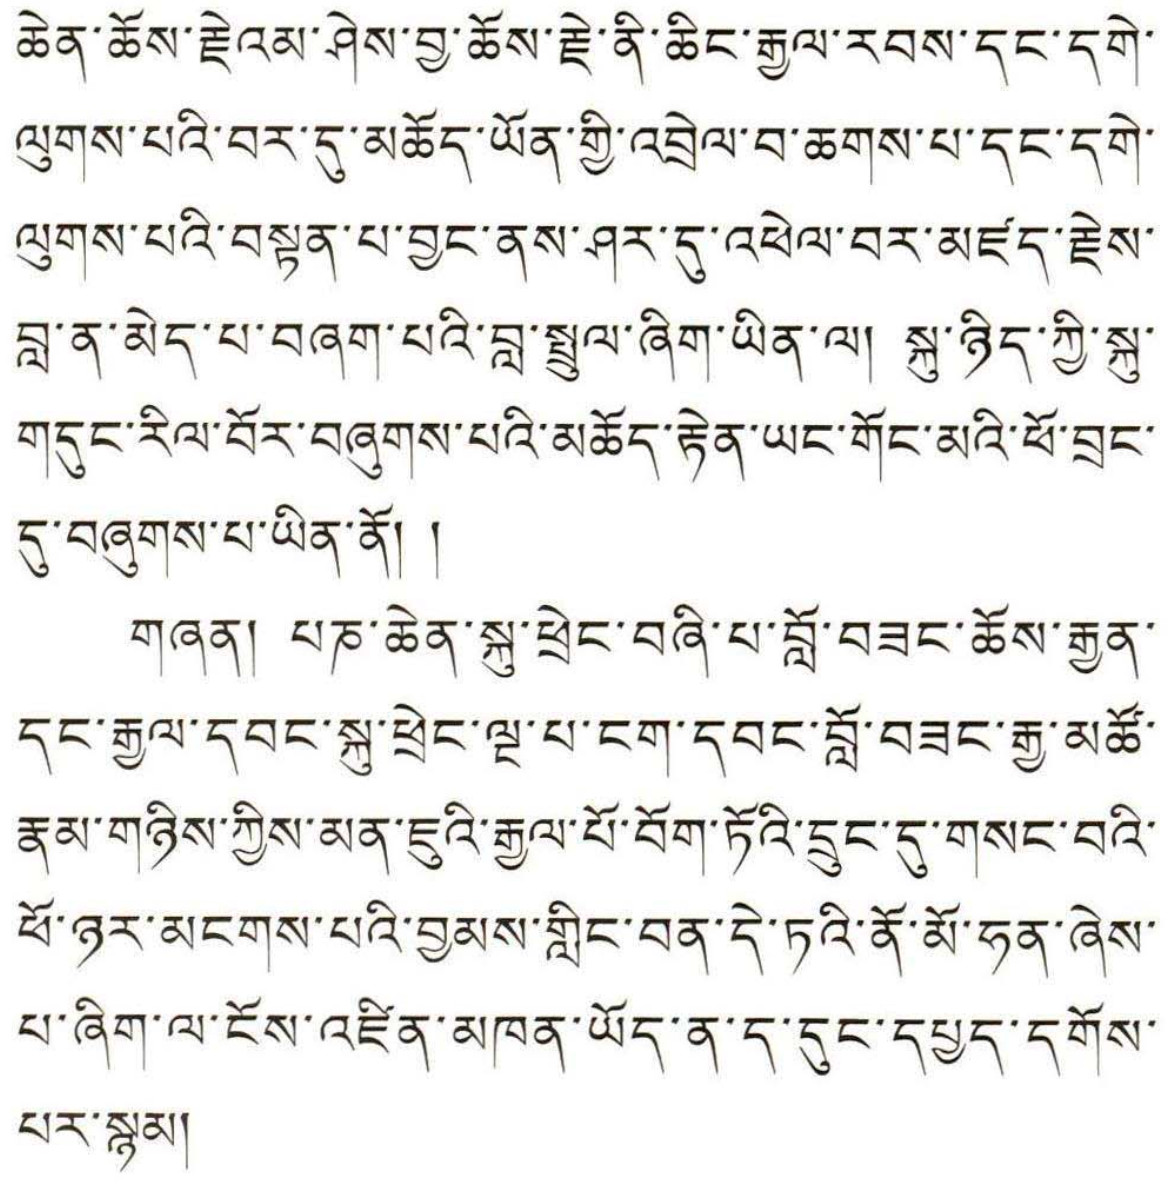 ཆེན་ཆོས་རྗེའམ་ཤེས་བྱ་ཆོས་རྗེ་ནི་ཆིང་རྒྱལ་རབས་དང་དགེ་
ལུགས་པའི་བར་དུ་མཆོད་ཡོན་གྱི་འབྲེལ་བ་ཆགས་པ་དང་དགེ་
ལུགས་པའི་བསྟན་པ་བྱང་ནས་ཤར་དུ་འཕེལ་བར་མཛད་རྗེས་
བླ་ན་མེད་པ་བཞག་པའི་བླ་སྤྲུལ་ཞིག་ཡིན་ལ། སྐུ་ཉིད་ཀྱི་སྐུ་
གདུང་རིལ་བོར་བཞུགས་པའི་མཆོད་རྟེན་ཡང་གོང་མའི་ཕོ་བྲང་
དུ་བཞུགས་པ་ཡིན་ནོ། །
གཞན། པཎ་ཆེན་སྐུ་ཕྲེང་བཞི་པ་བློ་བཟང་ཆོས་རྒྱན་
དང་རྒྱལ་དབང་སྐུ་ཕྲེང་ལྔ་པ་ངག་དབང་བློ་བཟང་རྒྱ་མཚོ་
རྣམ་གཉིས་ཀྱིས་མན་ཇུའི་རྒྱལ་པོ་བོག་ཏོའི་དྲུང་དུ་གསང་བའི་
ཕོ་ཉར་མངགས་པའི་བྱམས་གླིང་བན་དེ་ཏའི་ནོ་མོ་ཧན་ཞེས་
པ་ཞིག་ལ་ངོས་འཛིན་མཁན་ཡོད་ན་ད་དུང་དཔྱད་དགོས་
པར་སྙམ།